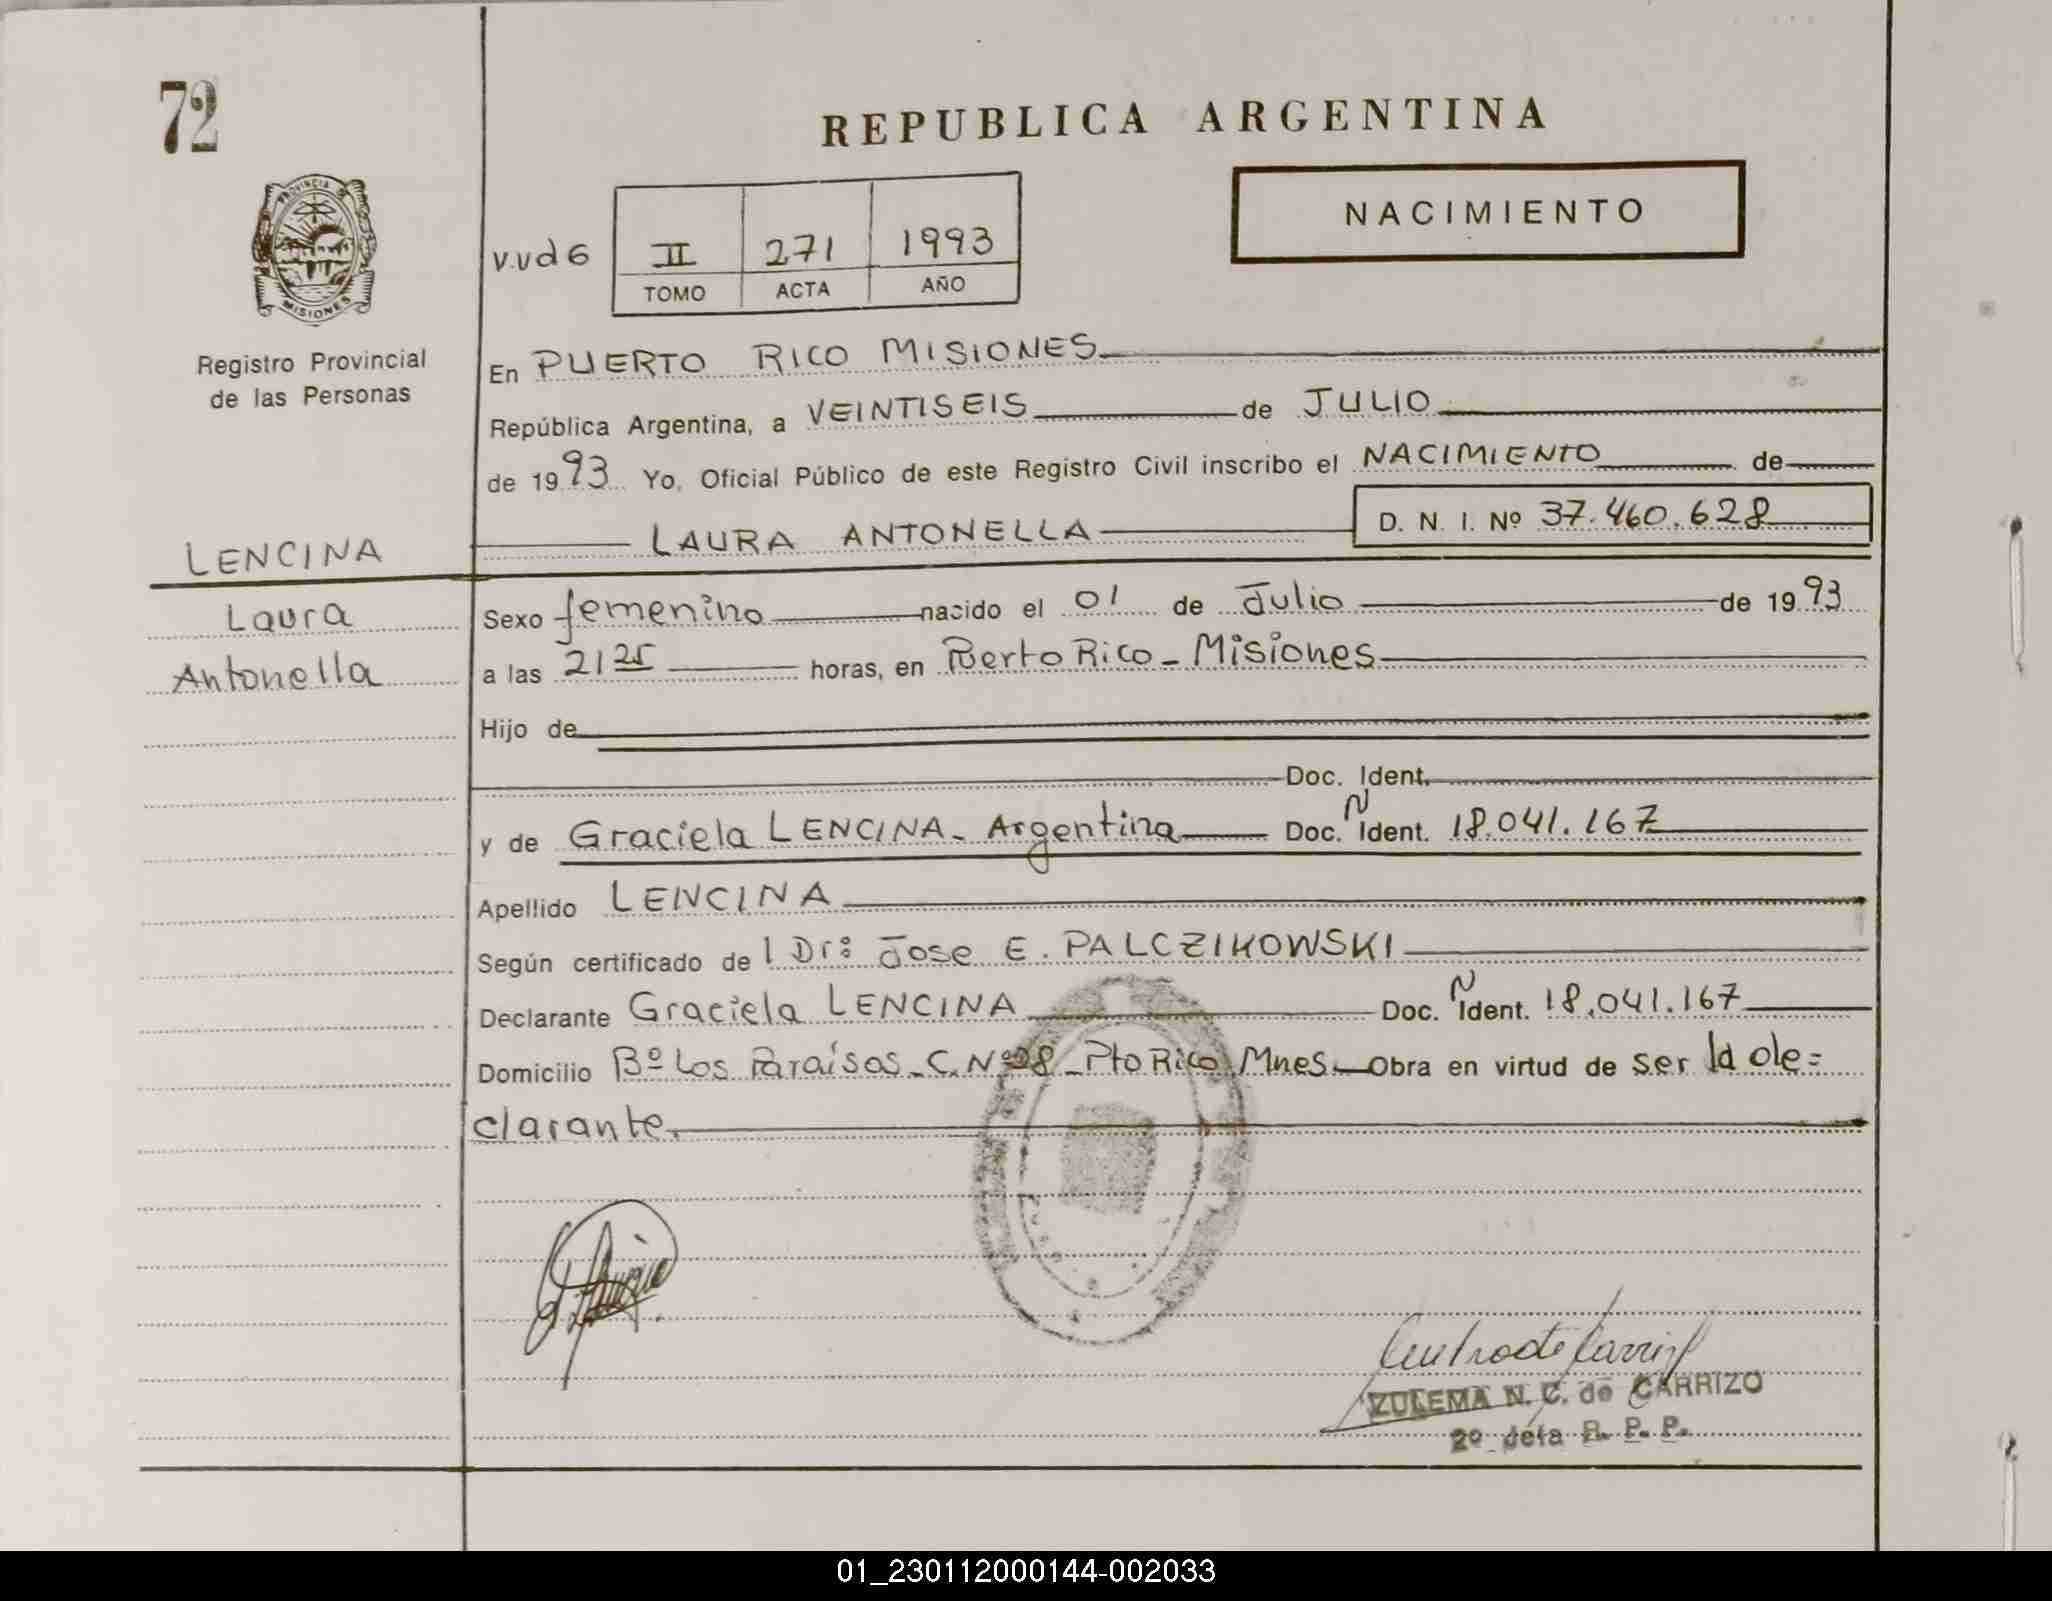 72
REPUBLICA ARGENTINA
NACIMIENTO
PROVINCIA DE MISIONES
v.ud6 II 271 1993
TOMO ACTA AÑO
Registro Provincial
de las Personas
En PUERTO RICO MISIONES
República Argentina, a VEINTISEIS de JULIO
de 1993 Yo, Oficial Público de este Registro Civil inscribo el NACIMIENTO de
LAURA ANTONELLA D. N. I. Nº 37.460.628
LENCINA
Laura
Antonella
Sexo femenino nacido el 01 de Julio de 1993
a las 2125 horas, en Puerto Rico - Misiones
Hijo de
Doc. Ident.
y de Graciela LENCINA - Argentina Doc. N Ident. 18.041.167
Apellido LENCINA
Según certificado de l Dr: Jose E. PALCZIKOWSKI
Declarante Graciela LENCINA Doc. N Ident. 18.041.167
Domicilio Bº Los Paraísos - C. Nº28 - Pto Rico Mnes. Obra en virtud de ser la de=
clarante.
ZULEMA N. C. de CARRIZO
2º Jefa R. P. P.
01_230112000144-002033